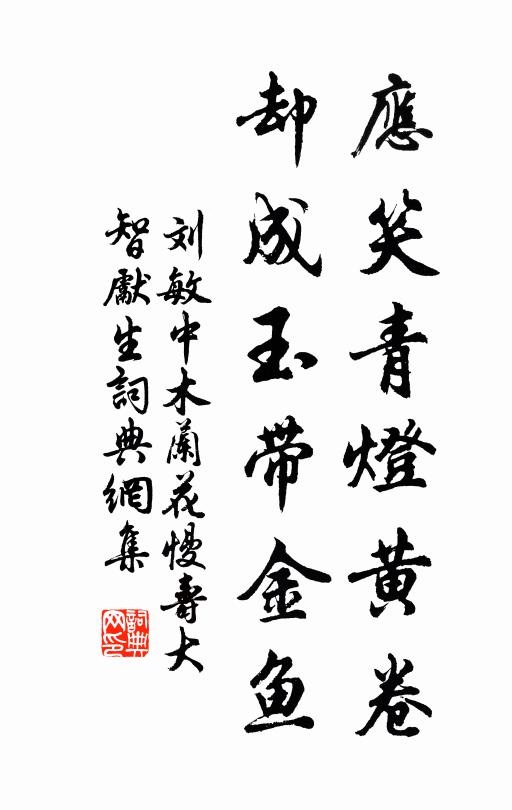 應笑青燈黄卷
却成玉带金鱼
刘敏中木蘭花慢壽大
智獻生詞典網集
詞典
网印